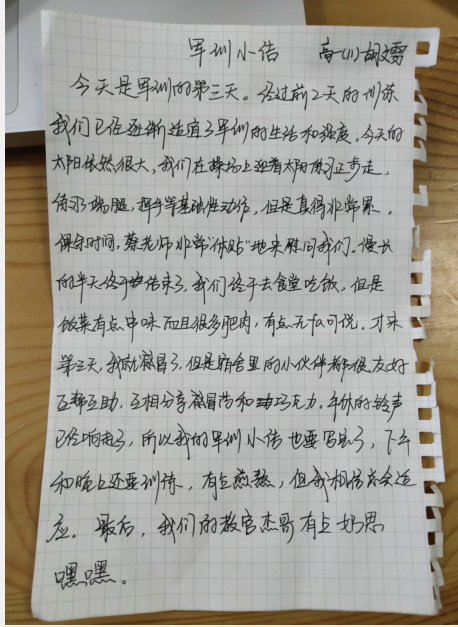 军训小结 高一(1) 胡雯
今天是军训的第三天。经过前2天的训练
我们已经逐渐适宜了军训的生活和强度。今天的
太阳依然很大,我们在操场上迎着太阳练习正步走,
练习踢腿,摆手等基础性动作,但是真得非常累。
保备时间,蔡老师非常“体贴”地来慰问我们。漫长
的半天终于结束了,我们终于去食堂吃饭,但是
饭菜有点串味而且很多肥肉,有点无fa可说。才来
第三天,我就感冒了,但是宿舍里的小伙伴都很友好
互帮互助,互相分享感冒药和巧克力。午休的铃声
已经响起了,所以我的军训小结也要写完了,下午
和晚上还要训练,有点煎熬,但我相信总会适
应。最后,我们的教官杰哥有点奶思
嘿嘿。